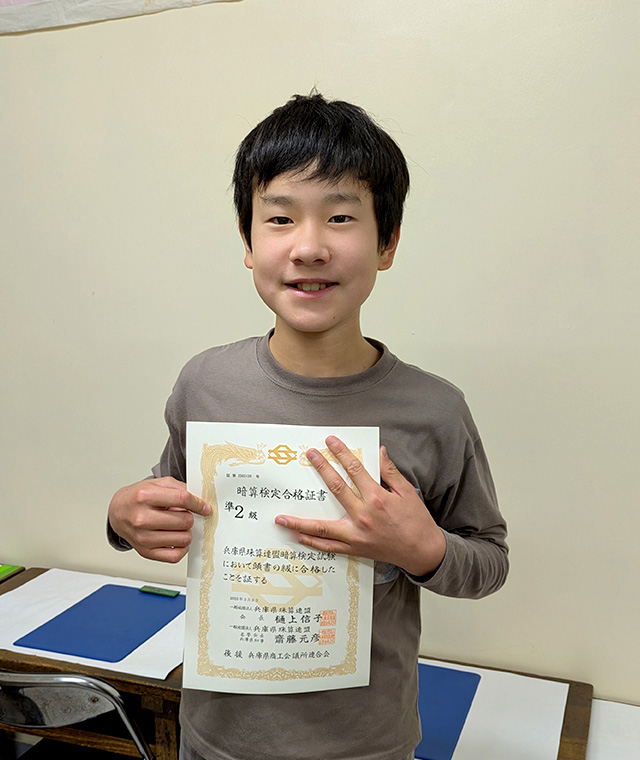 暗算検定合格証書
準2級
兵庫県珠算連盟暗算検定試験
において頭書の級に合格した
ことを証する
一般社団法人 兵庫県珠算連盟
会長 樋上信子
一般社団法人 兵庫県珠算連盟
名誉会長
兵庫県知事 齋藤元彦
後援 兵庫県商工会議所連合会